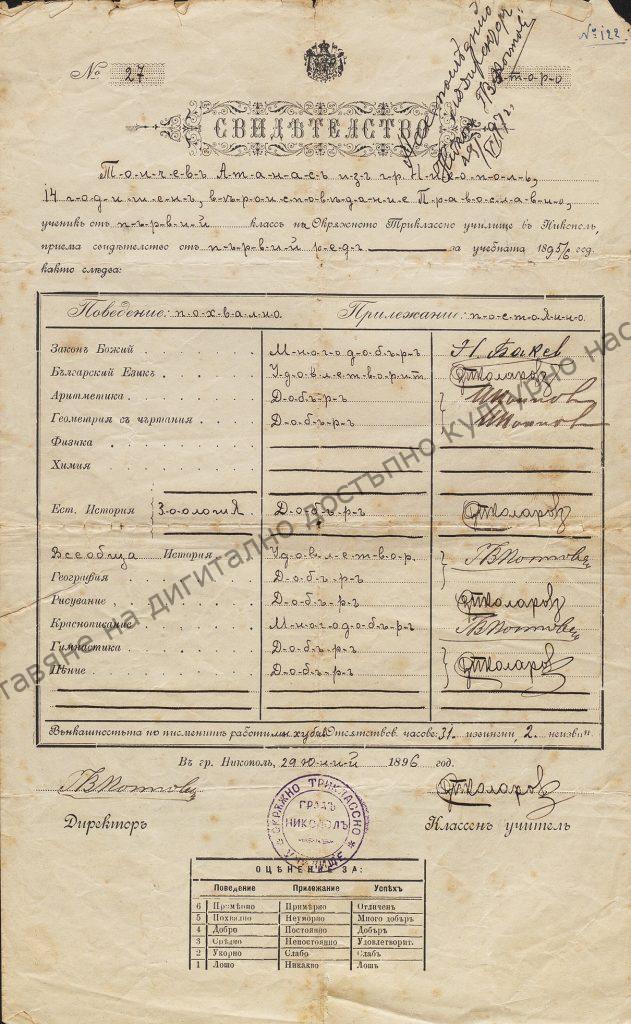 № 122
№ 27
СВИДѢТЕЛСТВО
Тончевъ Атанасъ изъ гр. Никополъ,
14 годишенъ, вѣроисповѣдание Православно,
ученикъ отъ първий классъ на Окрѫжното Триклассно училище въ Никополъ,
приема свидѣтелство отъ първий редъ за учебната 1895/6 год.
както слѣдва:
Поведение: похвално. Прилежание: постоянно.
Законъ Божий Многодобъръ Н. Бакев
Българский Езикъ Удовлетворит. Коларовъ
Аритметика Добъръ
Геометрия съ чъртания Добъръ
Физика
Химия
Ест. История { Зоология } Добъръ Коларовъ
Всеобща История Удовлетвор.
География Добъръ
Рисувание Добъръ Коларовъ
Краснописание Многодобъръ
Гимнастика Добъръ Коларовъ
Пѣние Добъръ
Вънкашностьта на писменитѣ работи: хубава Отсѫтствов. часове: 31 извинени, 2 неизвин.
Въ гр. Никополъ, 29 Юний 1896 год.
Коларовъ
Директоръ Классенъ учитель
ОКРѪЖНО ТРИКЛАССНО УЧИЛИЩЕ
ГРАДЪ
НИКОПОЛЪ
ОЦѢНЕНИЕ ЗА:
Поведение Прилежание Успѣхъ
6 Примѣрно Примѣрно Отличенъ
5 Похвално Неуморно Много добъръ
4 Добро Постоянно Добъръ
3 Срѣдно Непостоянно Удовлетворит.
2 Укорно Слабо Слабъ
1 Лошо Никакво Лошъ
тавяне на дигитално достъпно културно нас